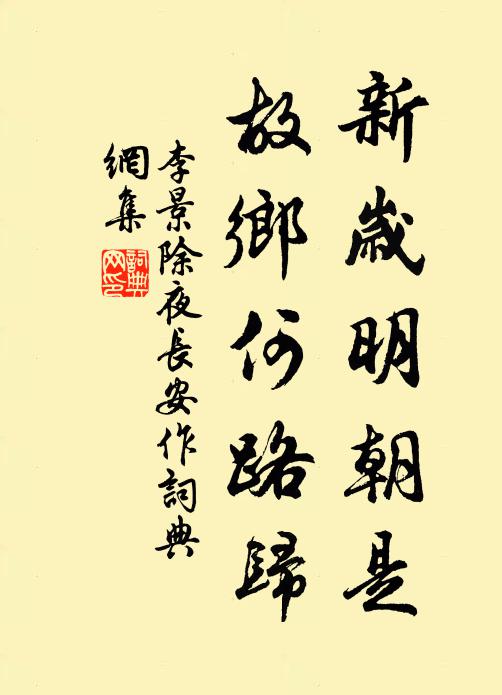 新歲明朝是
故鄉何路歸
李景除夜長安作詞典
網集
詞典網印